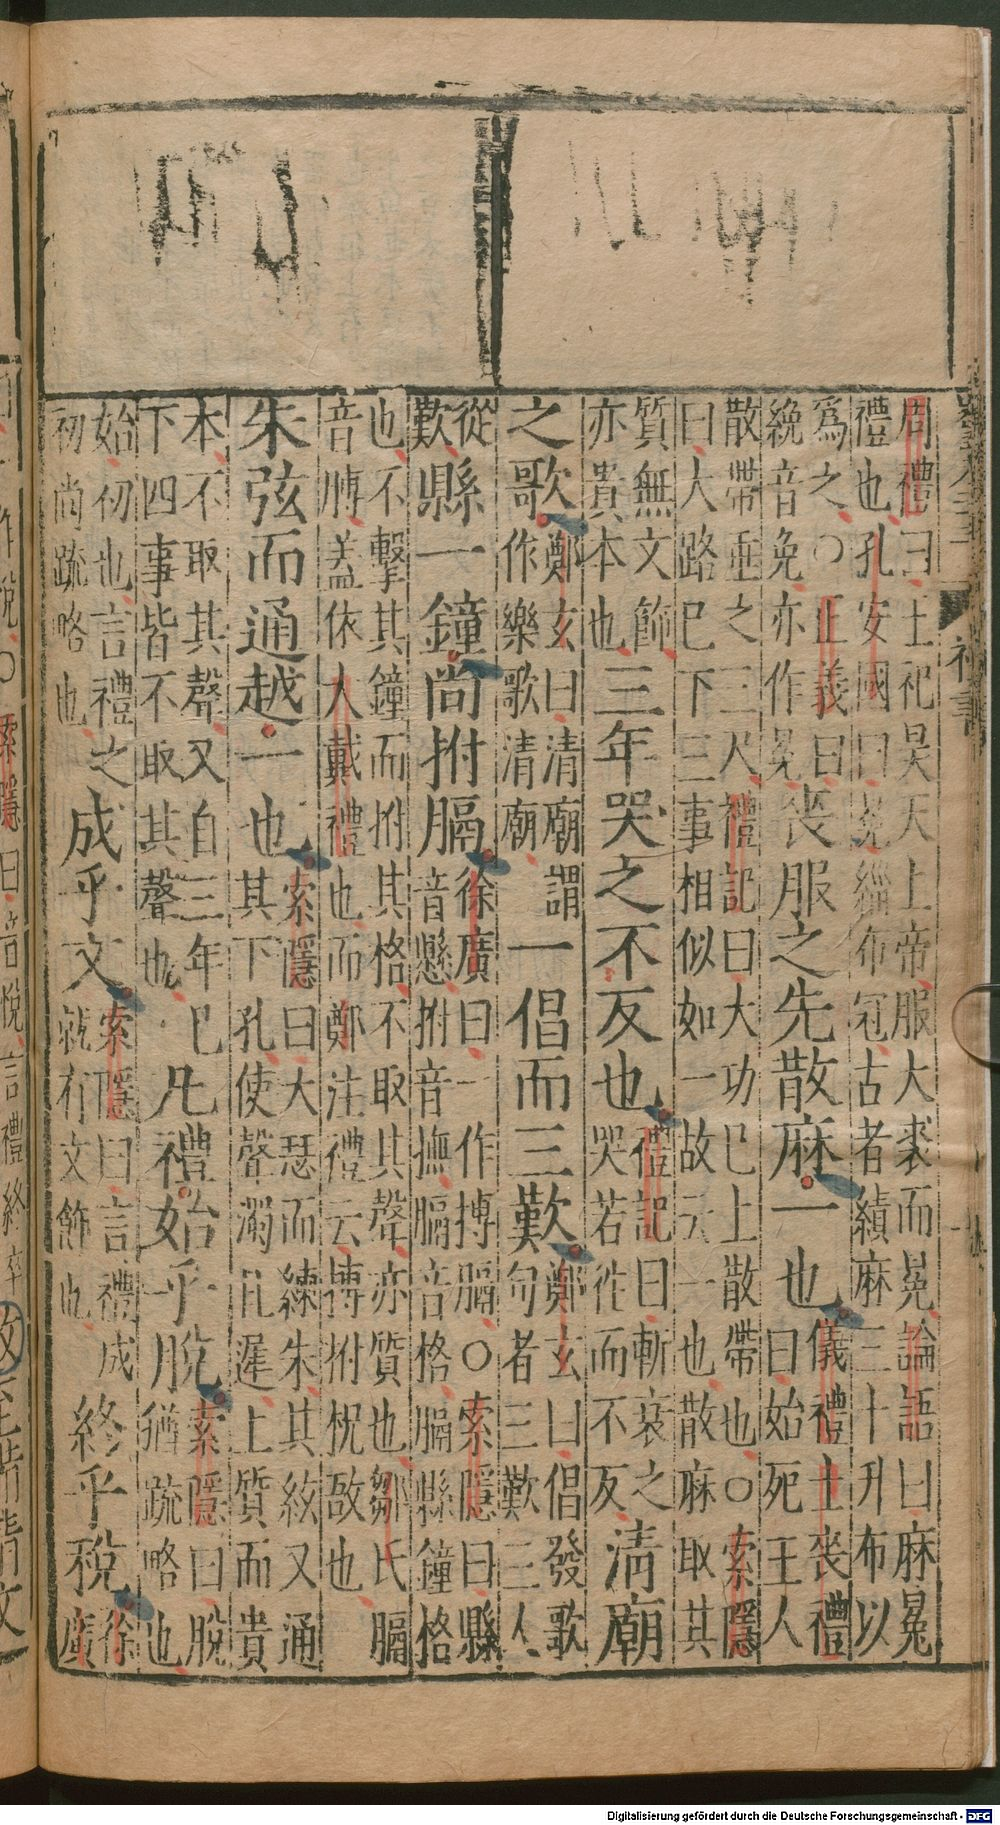 周禮曰王祀昊天上帝服大裘而冕論語曰麻冕
禮也孔安國曰冕緇布冠古者績麻三十升布以
爲之〇正義曰
絻音免亦作冕
喪服之先散麻一也
儀禮士喪禮
曰始死王人
散帶垂之三尺禮記曰大功已上散帶也〇索隱
曰大路已下三事相似如一故云一也散麻取其
質無文飾
亦貴本也
三年哭之不反也
禮記曰斬衰之
哭若往而不反
清廟
之歌
鄭玄曰清廟謂
作樂歌清廟
一倡而三歎
鄭玄曰倡發歌
句者三歎三人
從
歎
縣一鐘尚拊膈
徐廣曰一作搏膈〇索隱曰縣
音懸拊音撫膈音格膈縣鐘格
也不擊其鐘而拊其格不取其聲亦質也鄒氏膈
音膊蓋依大戴禮也而鄭注禮云搏拊柷敔也
朱弦而通越一也
索隱曰大瑟而練朱其絃又通
其下孔使聲濁且遲上質而貴
本不取其聲又自三年已
下四事皆不取其聲也
凡禮始乎脫
索隱曰脫
猶疏略也
始初也言禮之
初尚疏略也
成乎文
索隱曰言禮成
就有文飾也
終乎稅
徐
廣
禮書
Digitalisierung gefördert durch die Deutsche Forschungsgemeinschaft - DFG